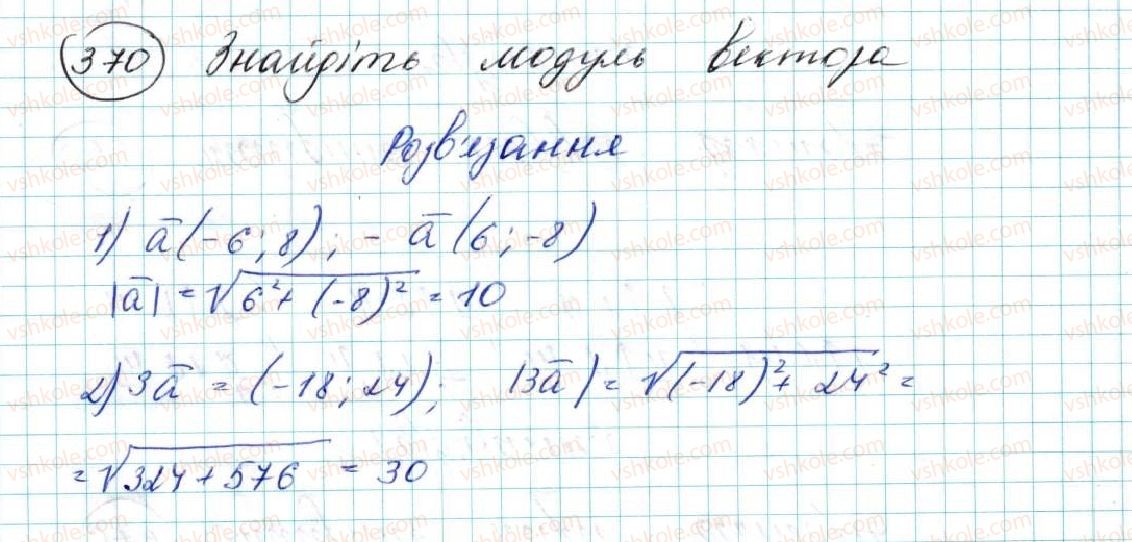 370 Знайдіть модуль вектора
Розв'язання
1) a̅ (-6; 8); - a̅ (6; -8)
|a̅| = √(6² + (-8)²) = 10
2) 3a̅ = (-18; 24); |3a̅| = √((-18)² + 24²) =
= √(324 + 576) = 30